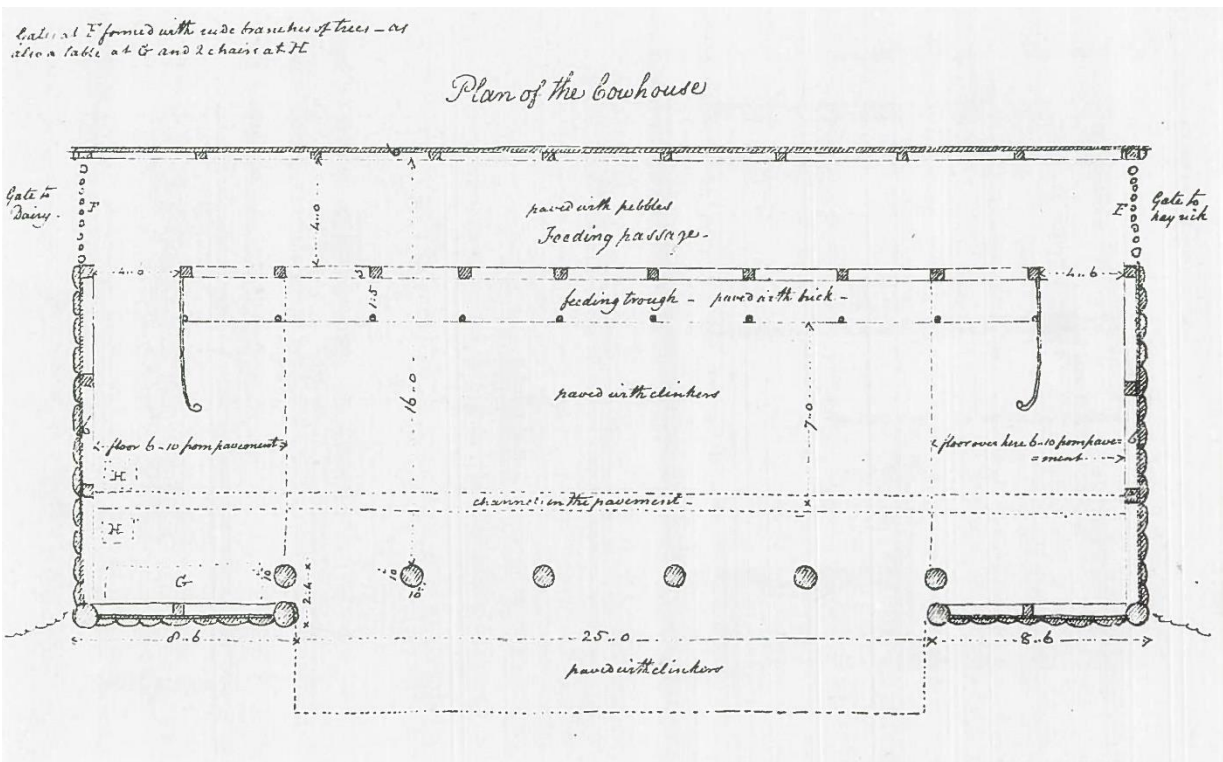 Gates at F formed with rude branches of trees – as
also a table at G and 2 chairs at H
Plan of the Cowhouse
Gate to
Dairy.
F
4..0
16..0
paved with pebbles
Feeding passage –
F
Gate to
hay rick
4..0
1..5
feeding trough – paved with brick –
4..6
paved with clinkers
7..0
floor 6-10 from pavement
floor over here 6-10 from pave=
=ment
6
H
channel in the pavement –
H
G
10
2..4
10
10
8..6
25..0
8..6
paved with clinkers